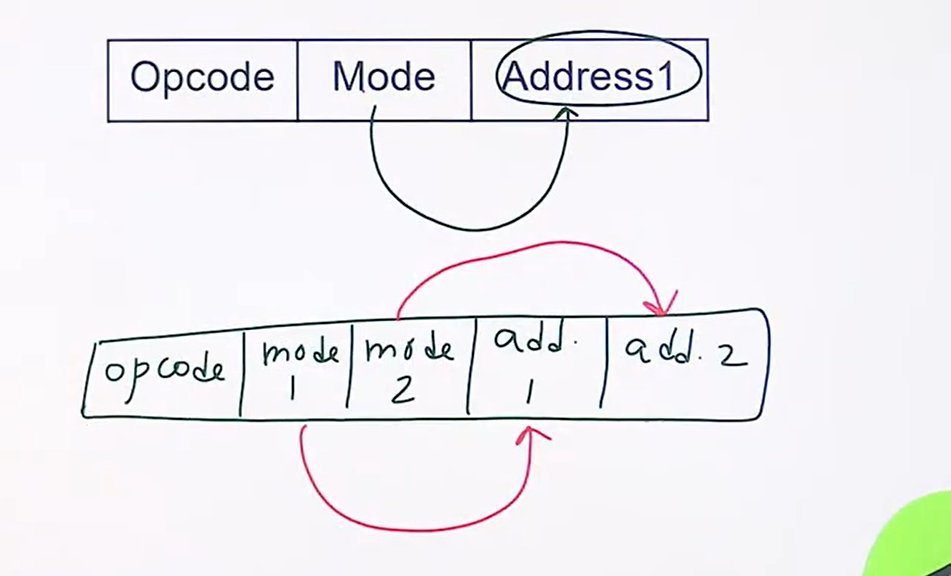 Opcode Mode Address1
opcode mode 1 mode 2 add. 1 add. 2